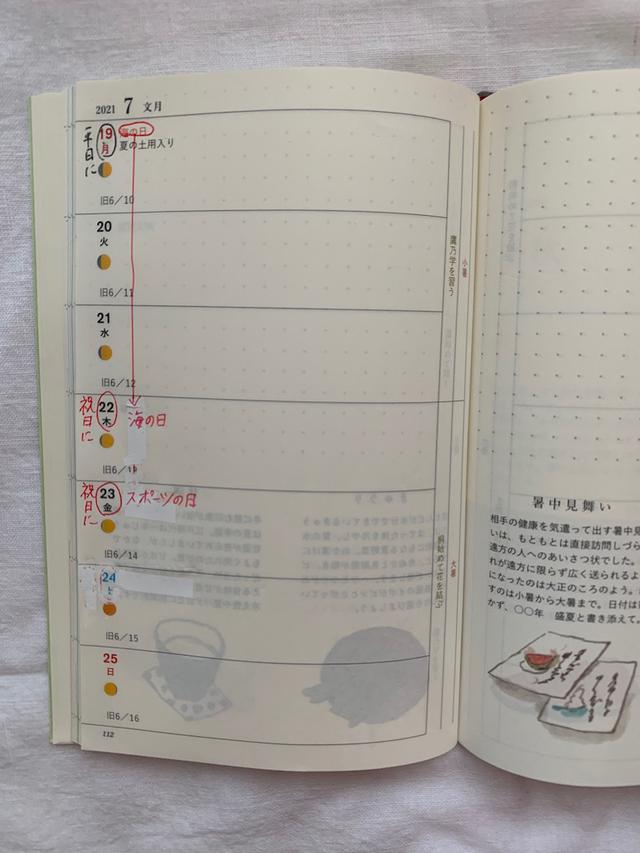 2021 7 文月
平日に
19
月
海の日
夏の土用入り
旧6/10
20
火
旧6/11
21
水
旧6/12
祝日に
22
木
海の日
旧6/1
祝日に
23
金
スポーツの日
旧6/14
24
土
旧6/15
25
日
旧6/16
112
小暑
鷹乃学を習う
大暑
桐始めて花を結ぶ
暑中見舞い
相手の健康を気遣って出す暑中見
いは、もともとは直接訪問しづら
遠方の人へのあいさつ状でした。
れが遠方に限らず広く送られるよ
になったのは大正のころのよう。
すのは小暑から大暑まで。日付は
かず、〇〇年 盛夏と書き添えて。